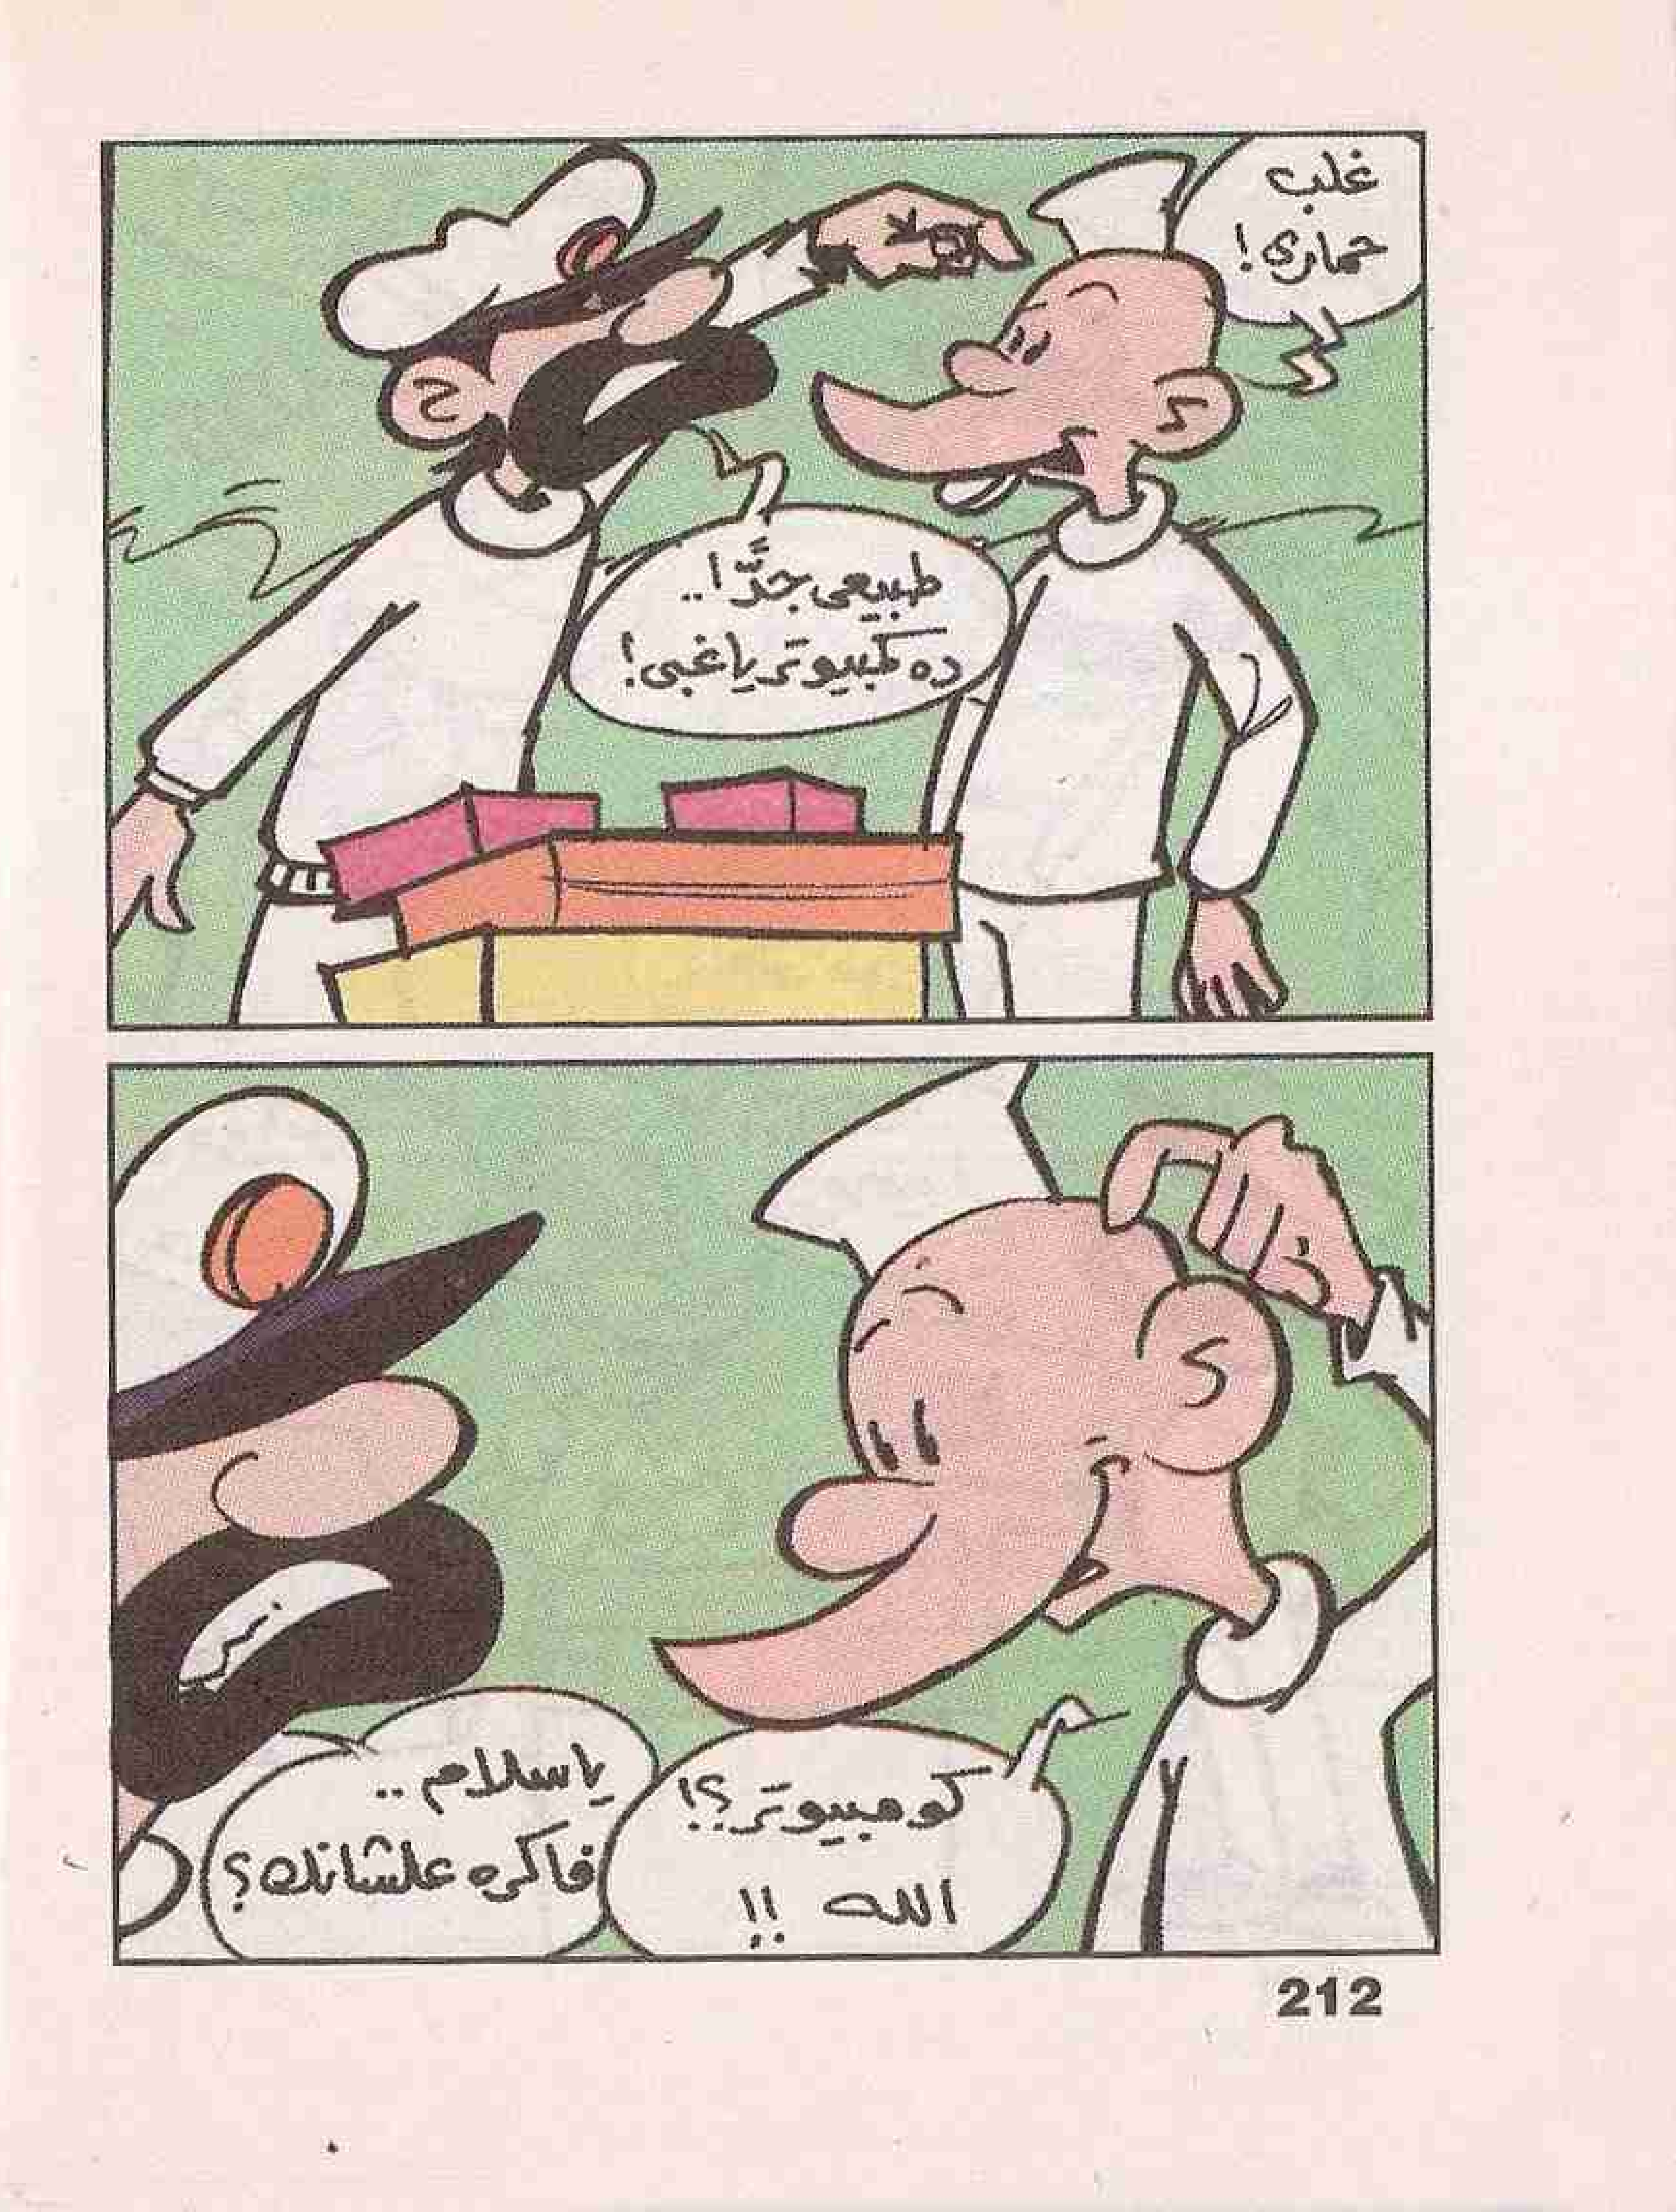 غلب
حمارى!
طبيعى جدًّا..
ده كمبيوتر يا غبى!
كومبيوتر؟!
الله !!
يا سلام ..
فاكره علشانك؟
212